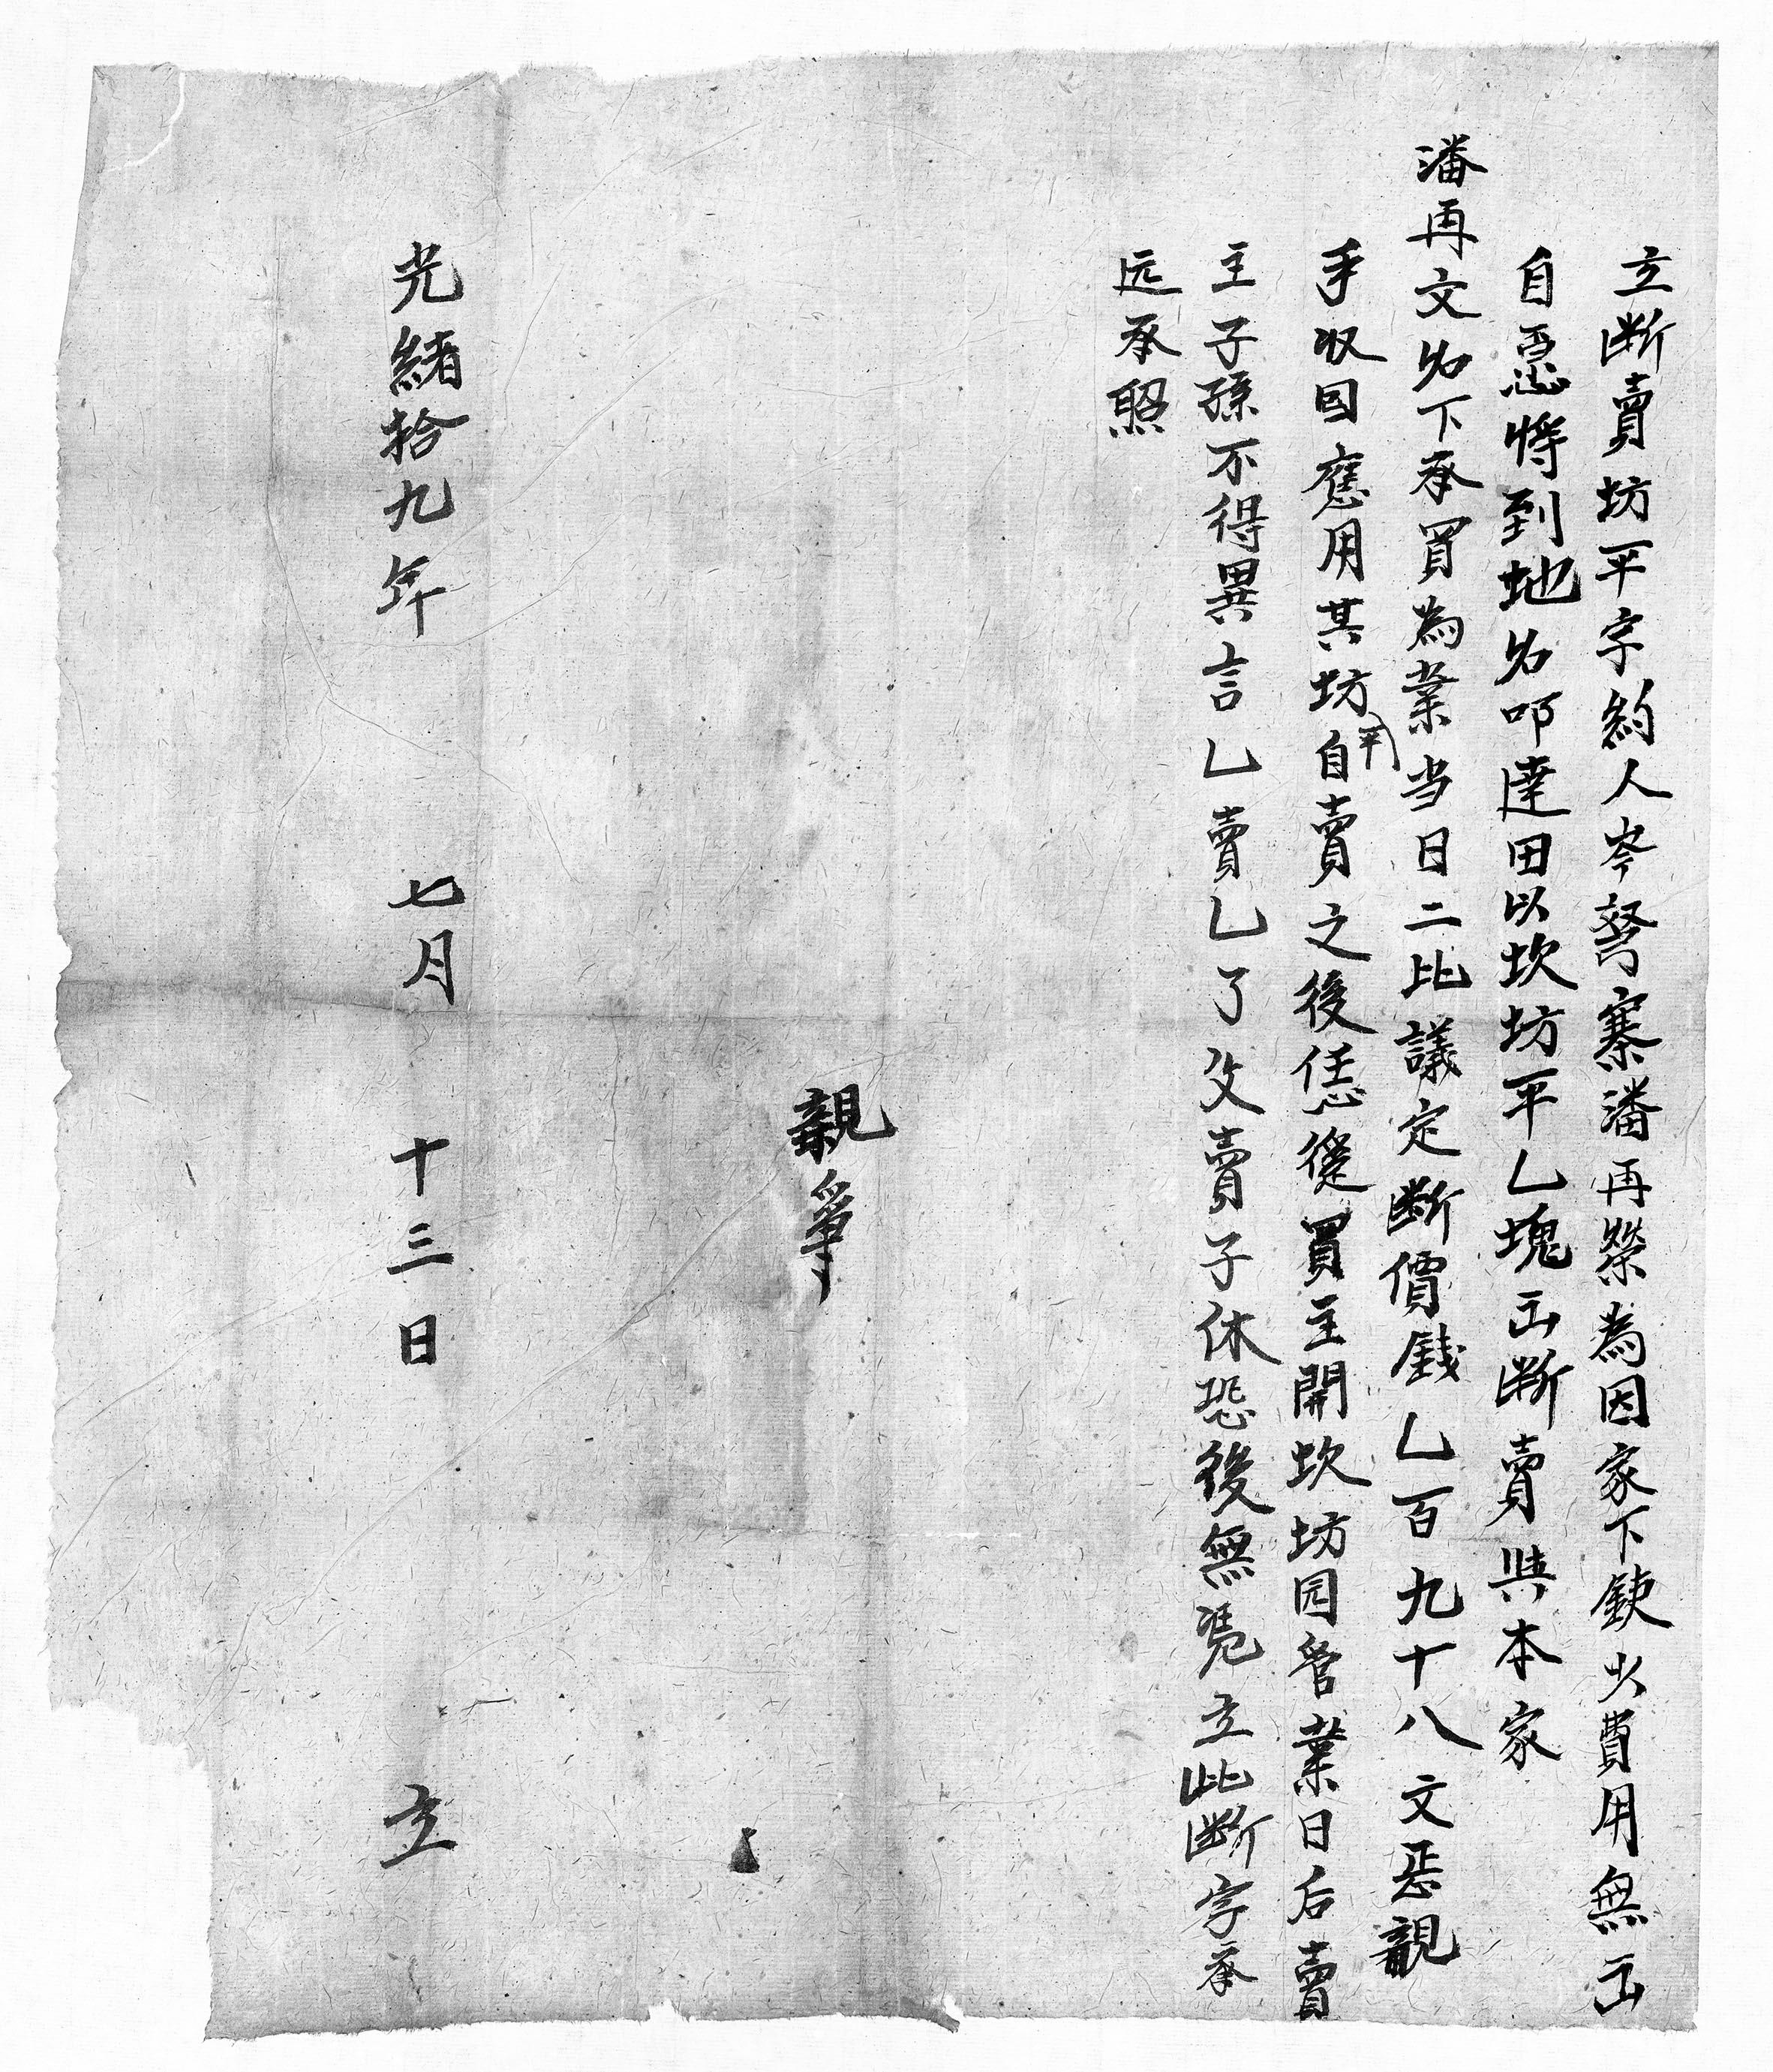 立断賣坊平字約人岑弩寨潘再榮為因家下鉄少費用無岀
自愿将到地名叩達田以坎坊平乚塊岀断賣與本家
潘再文名下承買為業当日二比議定断價錢乚百九十八文恶親
手収囬應用其坊平自賣之後恁從買主開坎坊园管業日后賣
主子孫不得異言乚賣乚了父賣子休恐後無凴立此断字承
远承照
親筆
光緒拾九年 七月 十三日 立